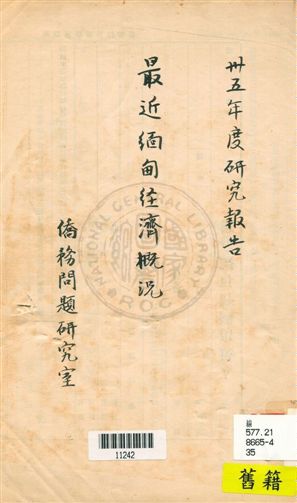 卅五年度研究報告
最近緬甸经濟概况
僑務問題研究室
NATIONAL CENTRAL LIBRARY
R.O.C
11242
577.21
8665-4
35
舊籍